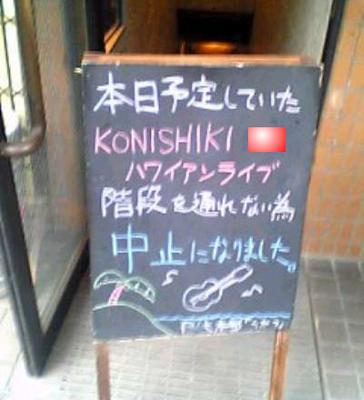 本日予定していた
KONISHIKI
ハワイアンライブ
階段を通れない為
中止になりました。